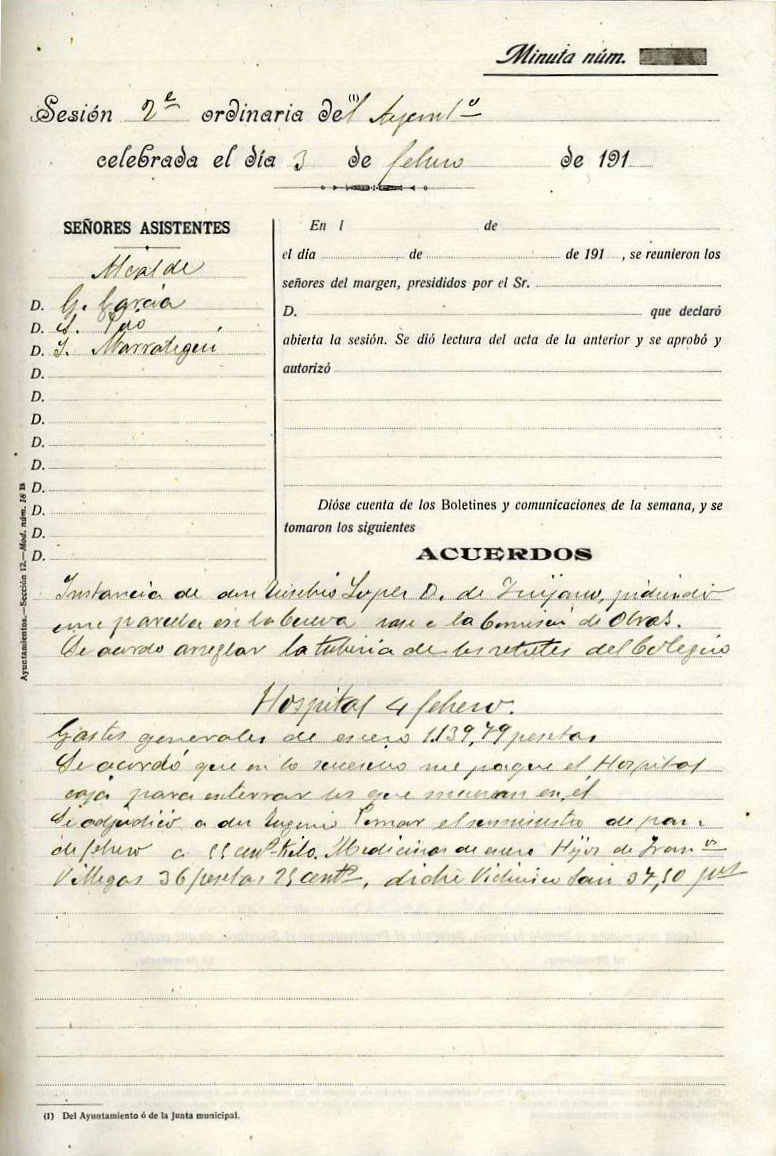 Minuta núm.
Sesión 2ª ordinaria de(1)l Ayuntº
celebrada el día 3 de febrero de 191
SEÑORES ASISTENTES
Alcalde
D. G. García
D. S.
D. I. Marrategui
D.
D.
D.
D.
D.
D.
D.
D.
D.
En l de
el día de de 191 , se reunieron los
señores del margen, presididos por el Sr.
D. que declaró
abierta la sesión. Se dió lectura del acta de la anterior y se aprobó y
autorizó
Dióse cuenta de los Boletines y comunicaciones de la semana, y se
tomaron los siguientes
ACUERDOS
Instancia de don Eusebio Lopez D. de Quijano, pidiendo
una parcela en la Cueva pase a la Comisión de Obras.
Se acordo arreglar la tuberia de los retretes del Colegio
Hospital 4 febrero.
Gastos generales de enero 1.139,79 pesetas
Se acordó que en lo sucesivo no pague el Hospital
caja para enterrar los que mueran en él
Se adjudicó a don Eugenio el suministro de pan
de febrero a 55 centˢ Kilo. Medicinas de enero Hijos de Franᶜᵒ
Villegas 36 pesetas 25 centˢ, 37,50 ptˢ
Ayuntamientos.—Sección 12.—Mod. núm. 18 B
(1) Del Ayuntamiento ó de la Junta municipal.